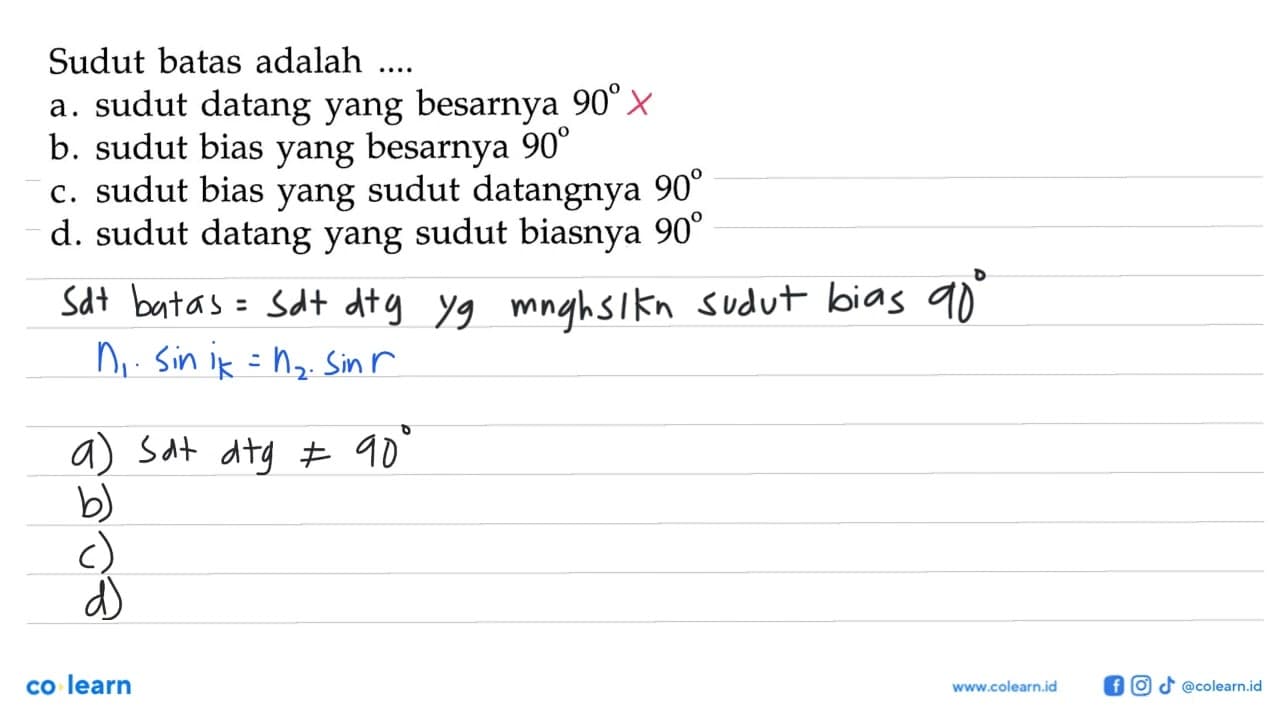 Sudut batas adalah ....
a. sudut datang yang besarnya 90° X
b. sudut bias yang besarnya 90°
c. sudut bias yang sudut datangnya 90°
d. sudut datang yang sudut biasnya 90°
Sdt batas = Sdt dtg yg mnghslkn sudut bias 90°
n₁. sin iₖ = n₂. sin r
a) Sdt dtg ≠ 90°
b)
c)
d)
co learn
www.colearn.id
@colearn.id